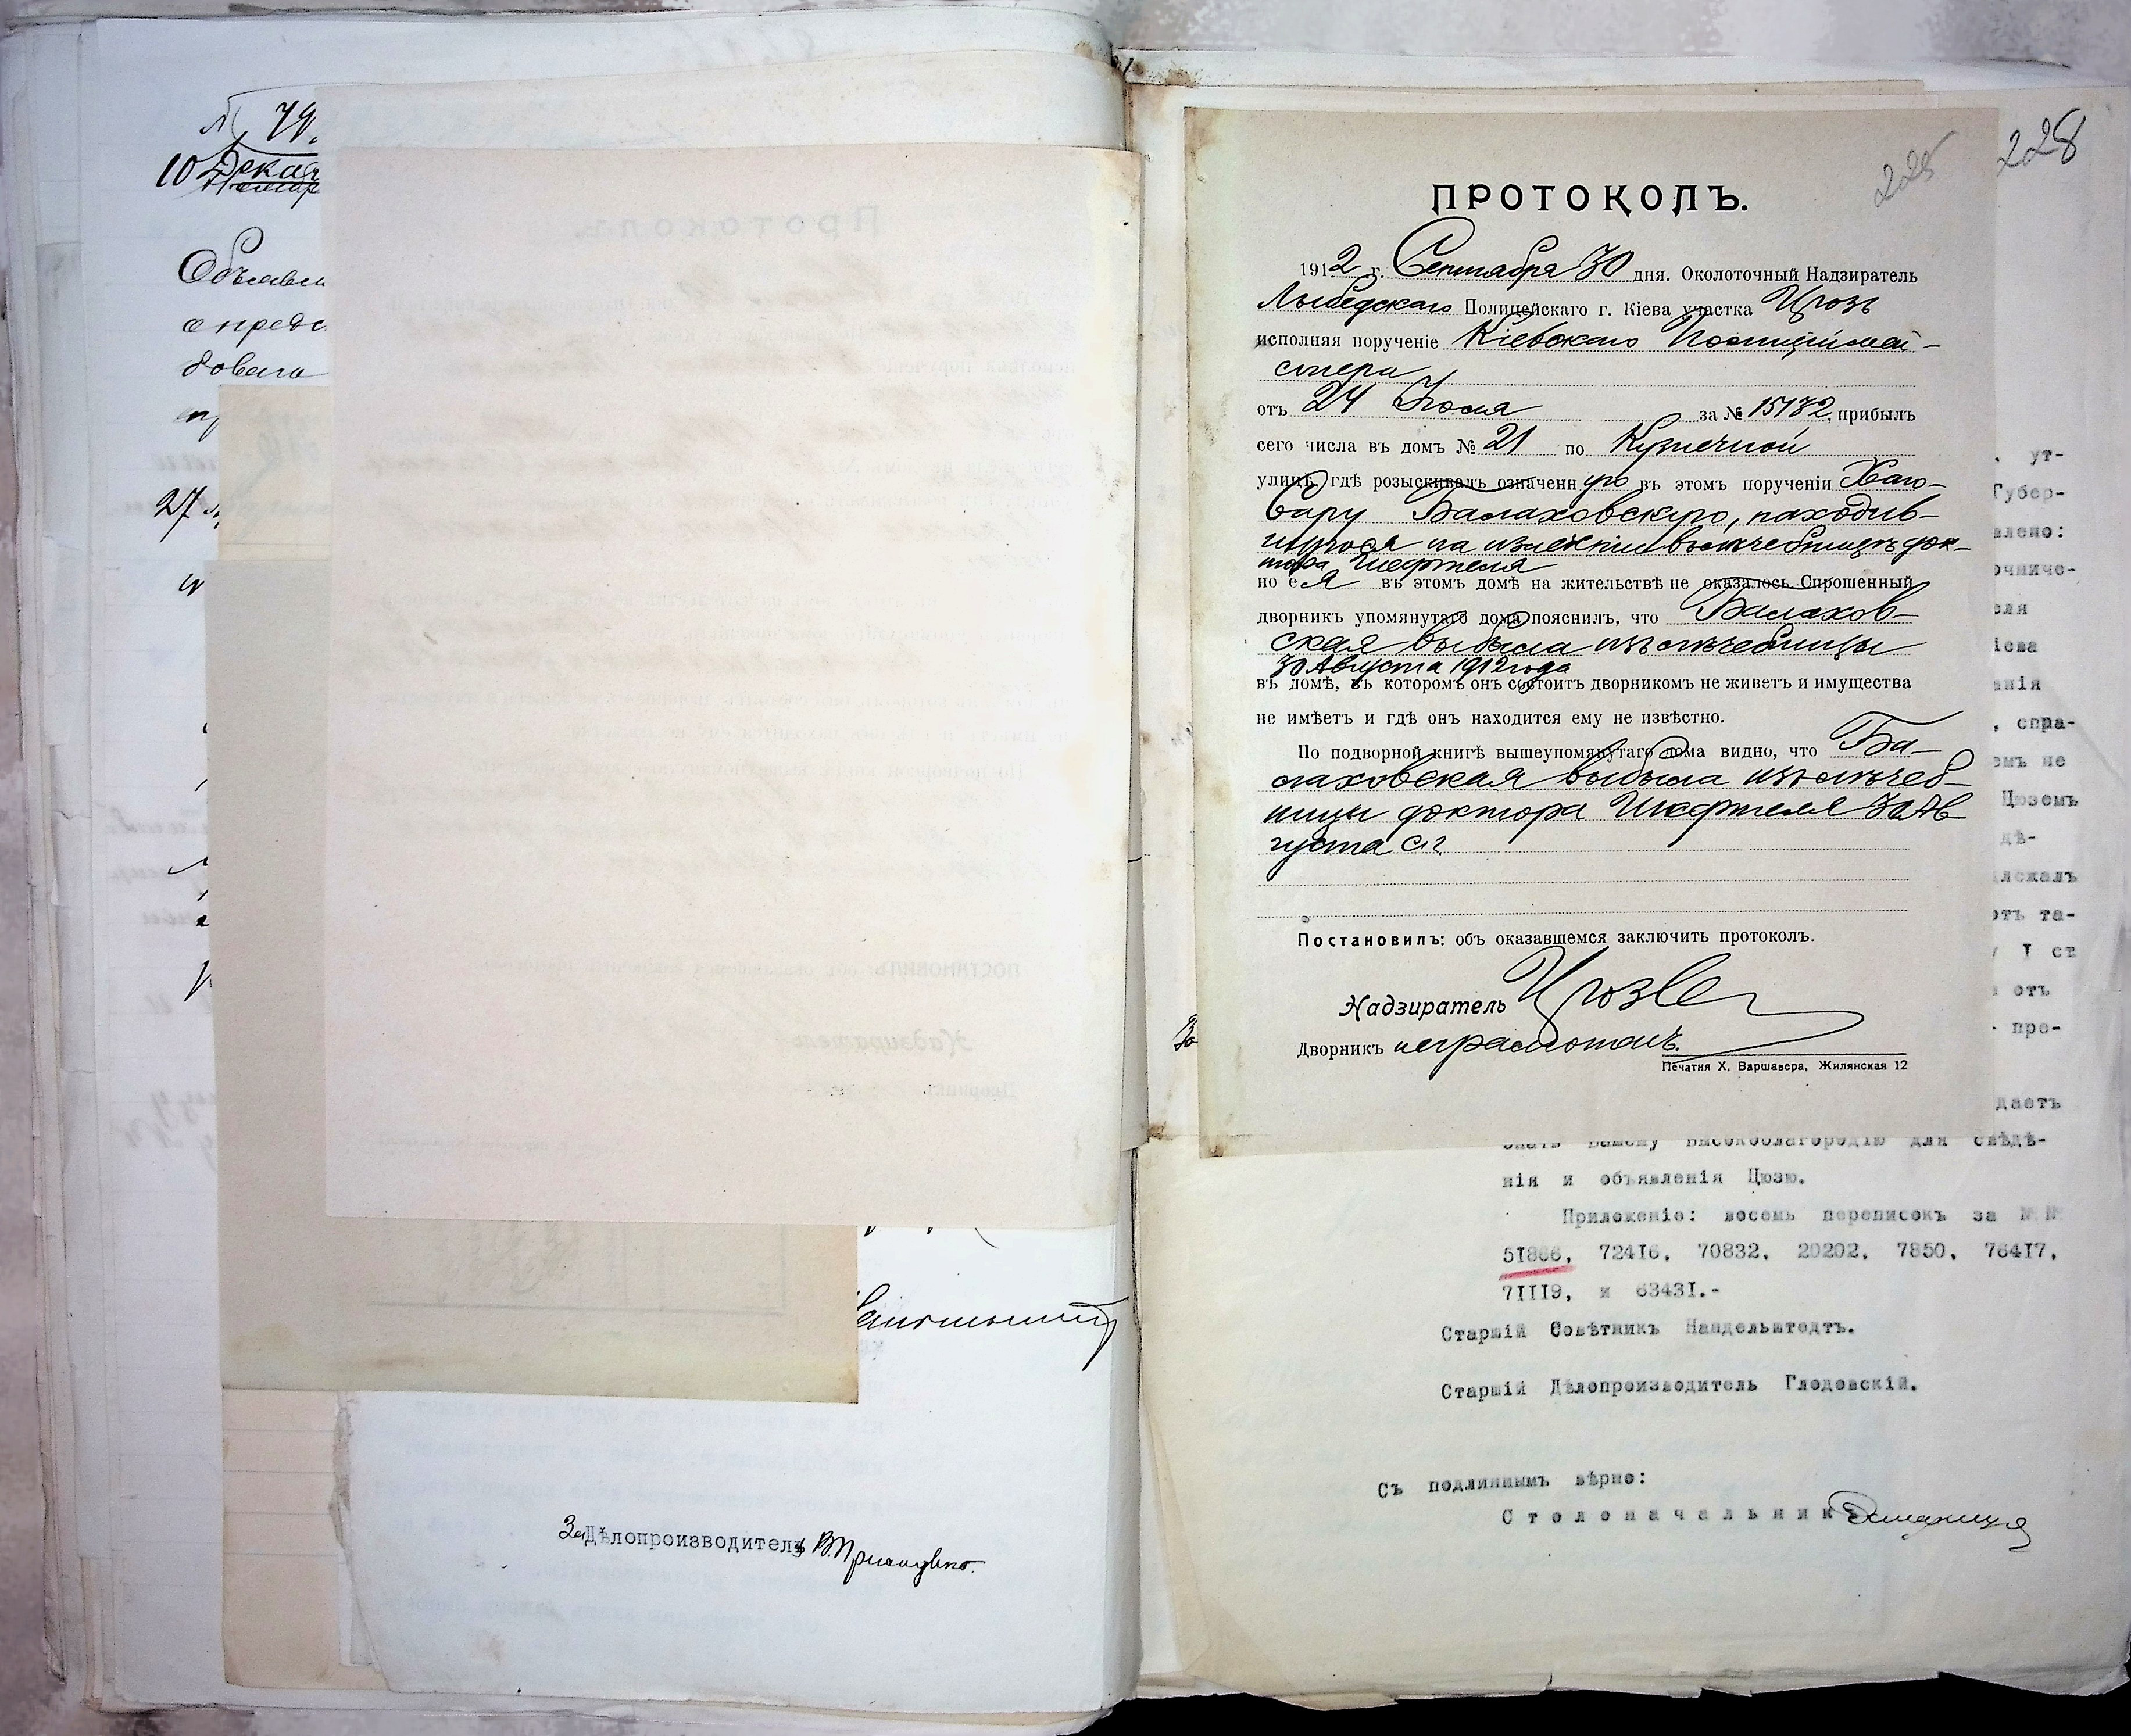 79.
10 Дека
27
За Дѣлопроизводитель
228
225
ПРОТОКОЛЪ.
1912 г. Сентября 30 дня. Околоточный Надзиратель
Лыбедскаго Полицейскаго г. Кіева участка Цюзь
исполняя порученіе Кіевскаго Полиціймей-
стера
отъ 24 Іюля за № 15182, прибылъ
сего числа въ домъ № 21 по Кузнечной
улицѣ, гдѣ розыскивалъ означенн ую въ этомъ порученіи Хаю-
Сару Балаховскую, находив-
шуюся на излѣченіи въ лѣчебницѣ док-
тора Шефтеля
но е я въ этомъ домѣ на жительствѣ не оказалось. Спрошенный
дворникъ упомянутаго дома пояснилъ, что Балахов-
ская выбыла изъ лѣчебницы
30 Августа 1912 года
въ домѣ, въ которомъ онъ состоитъ дворникомъ не живетъ и имущества
не имѣетъ и гдѣ онъ находится ему не извѣстно.
По подворной книгѣ вышеупомянутаго дома видно, что Ба-
лаховская выбыла изъ лѣчеб-
ницы доктора Шефтеля 30 Ав
густа с.г.
Постановилъ: объ оказавшемся заключить протоколъ.
Надзиратель Цюзь
Дворникъ неграмотенъ.
Печатня Х. Варшавера, Жилянская 12
, ут-
Губер-
влено:
очниче-
еля
іева
анія
, спра-
емъ не
Цюземъ
дѣ-
лежалъ
отъ та-
I ст
отъ
пре-
даетъ
знать Вашему Высокоблагородію для свѣдѣ-
нія и объявленія Цюзю.
Приложеніе: восемь переписокъ за №№
51866, 72416, 70832, 20202, 7850, 76417,
71119, и 63431.-
Старшій Совѣтникъ Нандельштедтъ.
Старшій Дѣлопроизводитель Глодовскій.
Съ подлиннымъ вѣрно:
Столоначальникъ